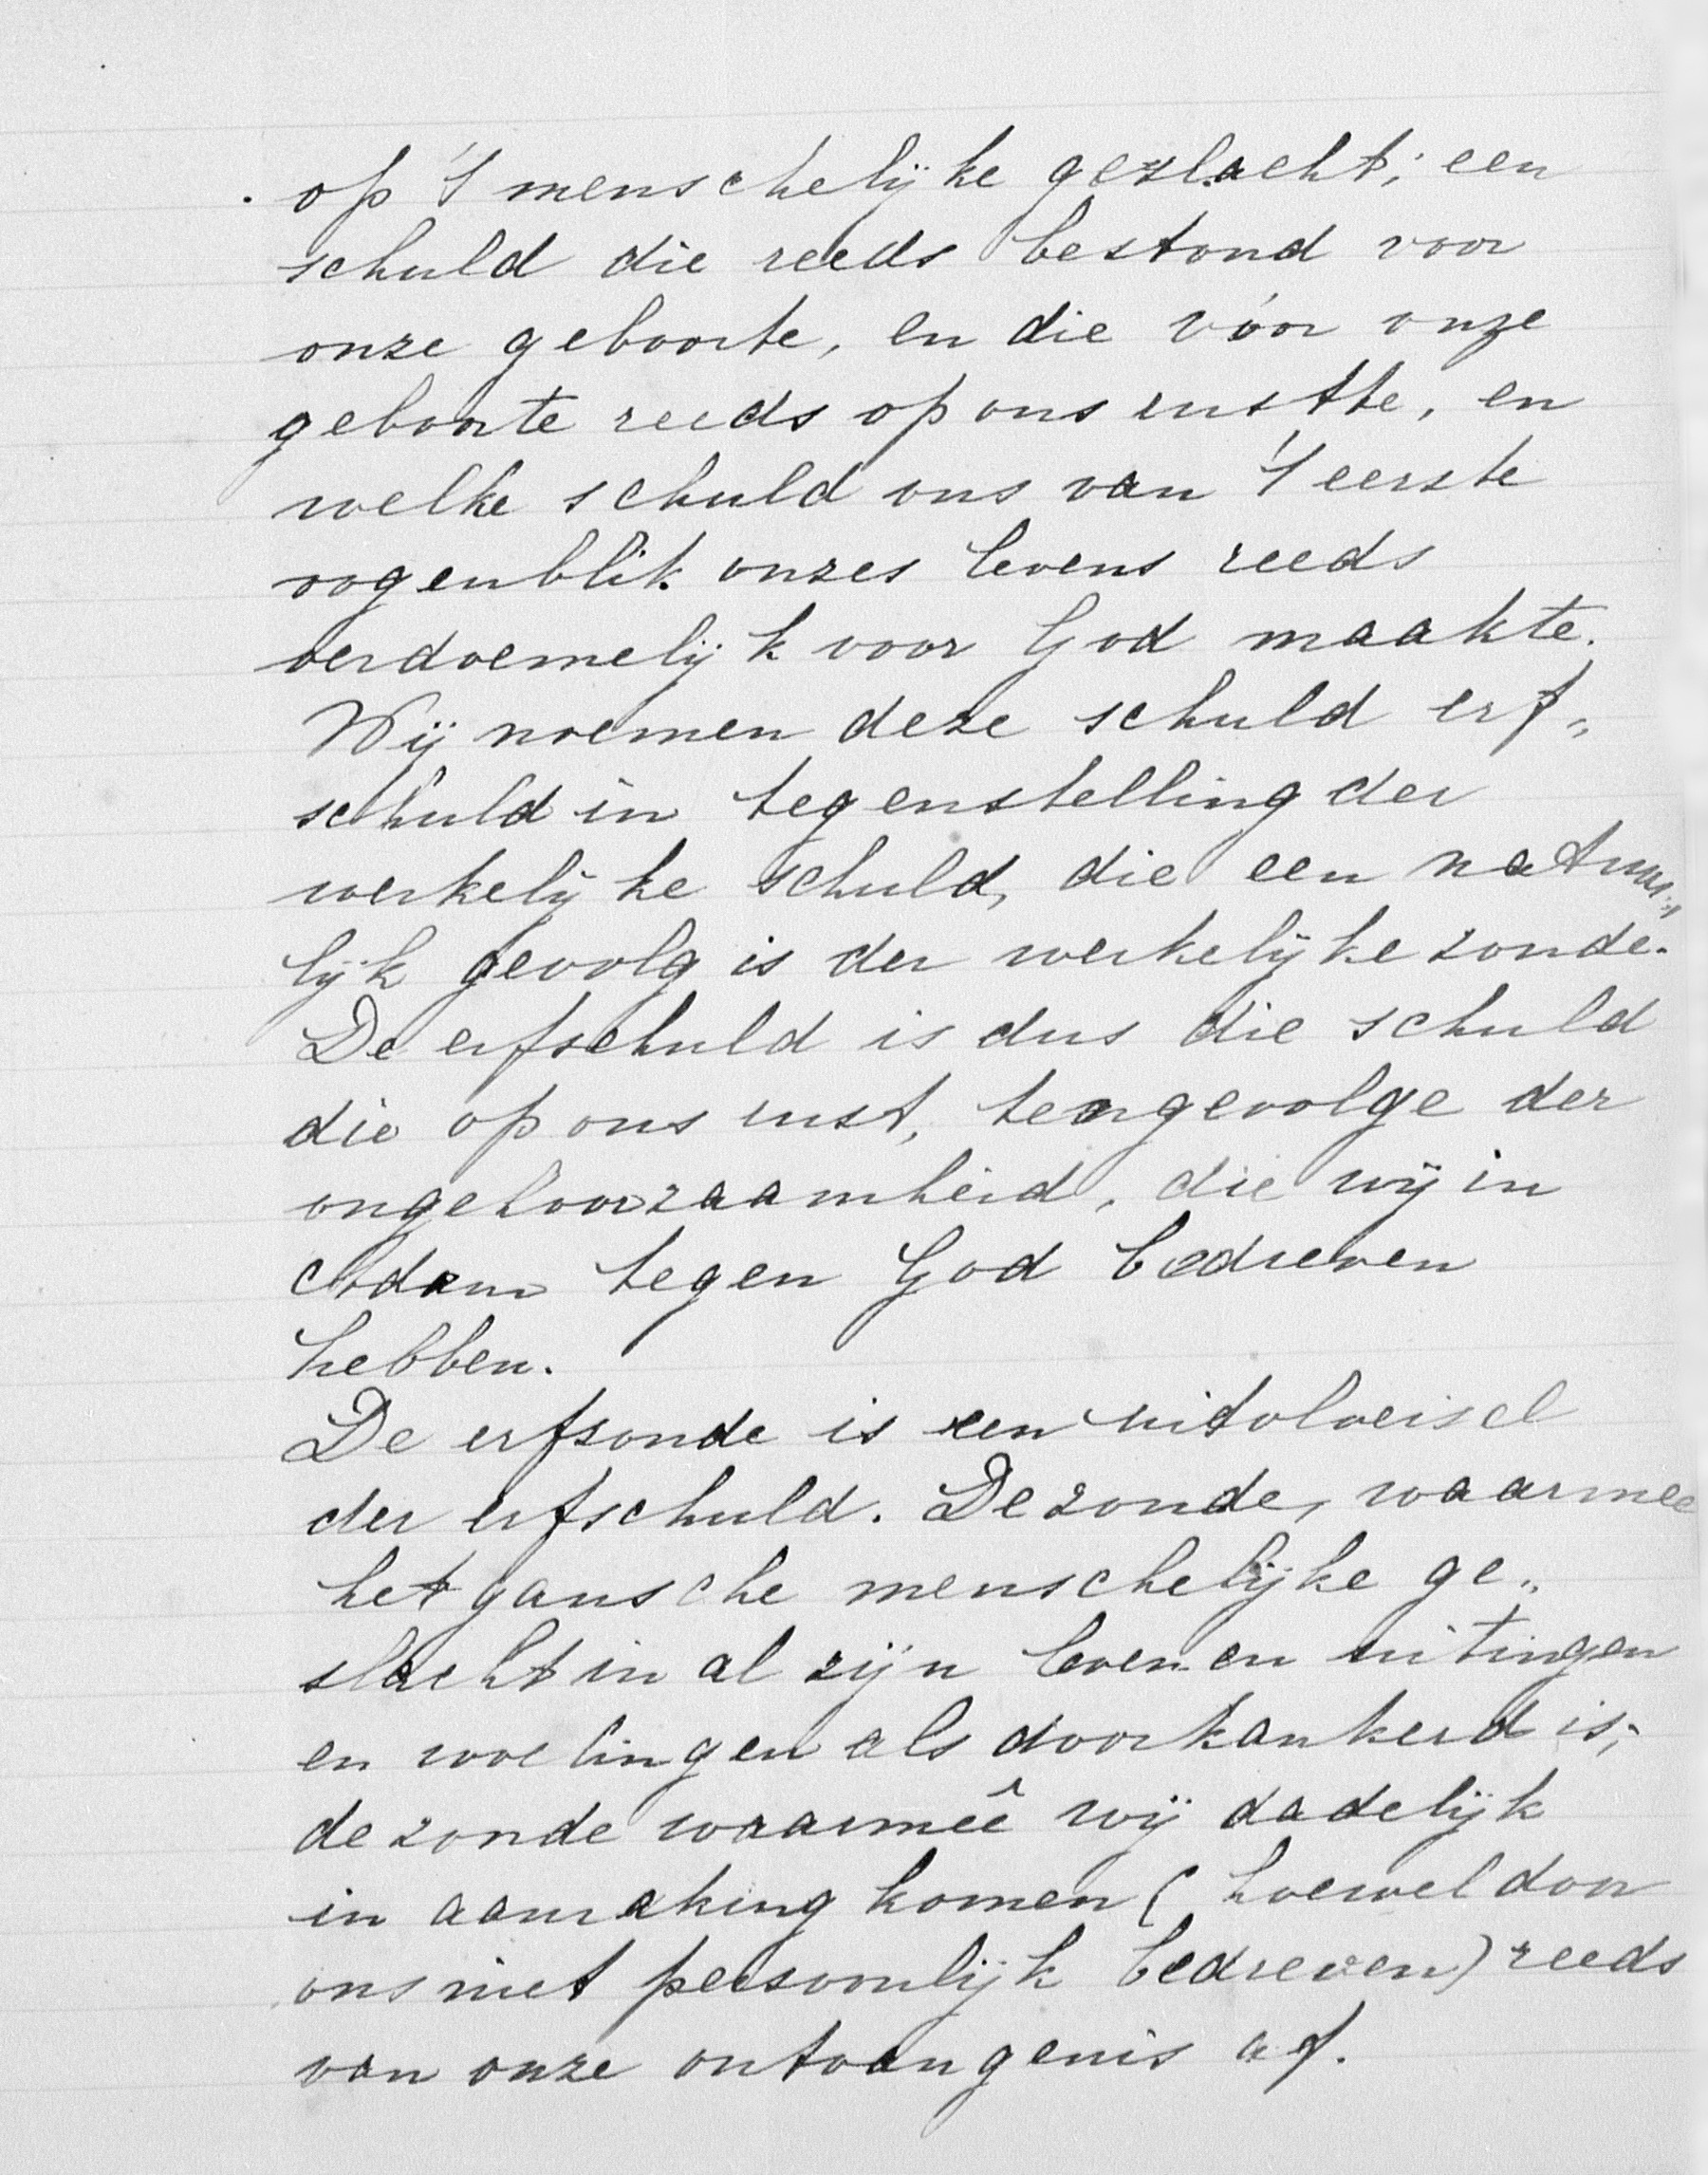 op 't menschelijke geslacht; een
schuld die reeds bestond voor
onze geboorte, en die vóor onze
geboorte reeds op ons rustte, en
welke schuld ons van 't eerste
oogenblik onzes levens reeds
verdoemelijk voor God maakte.
Wij noemen deze schuld erf„
schuld in tegenstelling der
werkelijke schuld, die een natuur„
lijk gevolg is der werkelijke zonde.
De erfschuld is dus die schuld
die op ons rust, tengevolge der
ongehoorzaamheid, die wij in
Adam tegen God bedreven
hebben.
De erfsonde is een uitvloeisel
der erfschuld. De zonde, waarmee
het gansche menschelijke ge„
slacht in al zijn leven en uitingen
en woelingen als doorkankerd is;
de zonde waarmeê wij dadelijk
in aanraking komen (hoewel door
ons niet persoonlijk bedreven) reeds
van onze ontvangenis af.